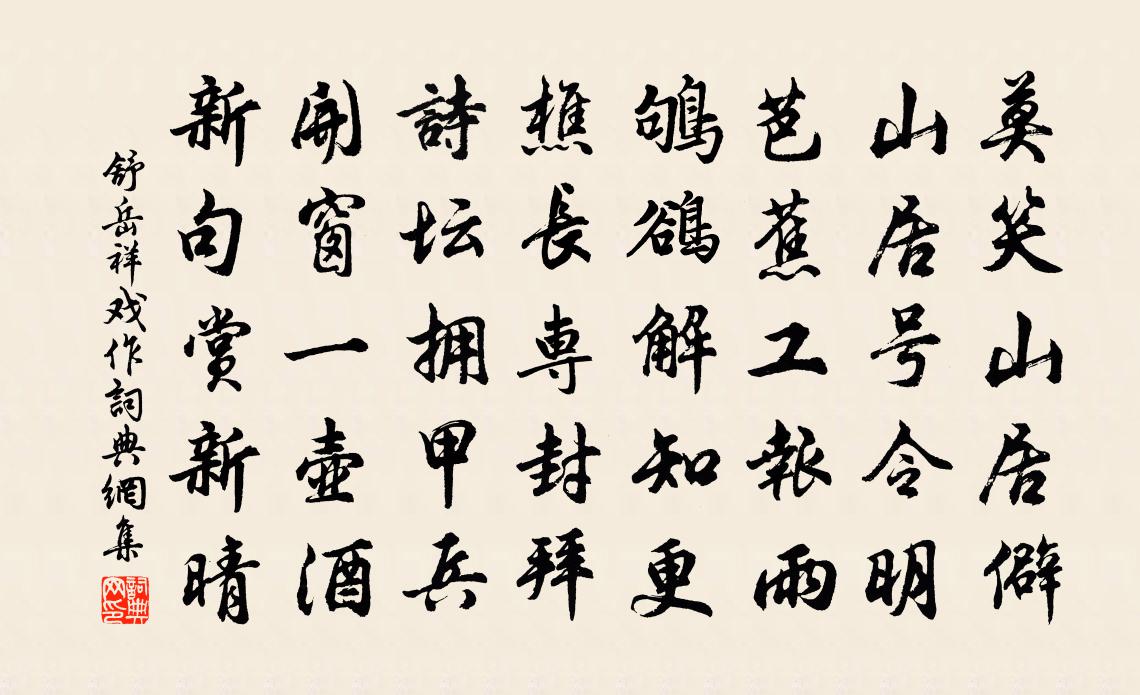 莫笑山居僻
山居号令明
芭蕉工報雨
鴝鵒解知更
樵長専封拜
詩坛拥甲兵
開窗一壷酒
新句赏新晴
舒岳祥戏作詞典網集
詞典网印